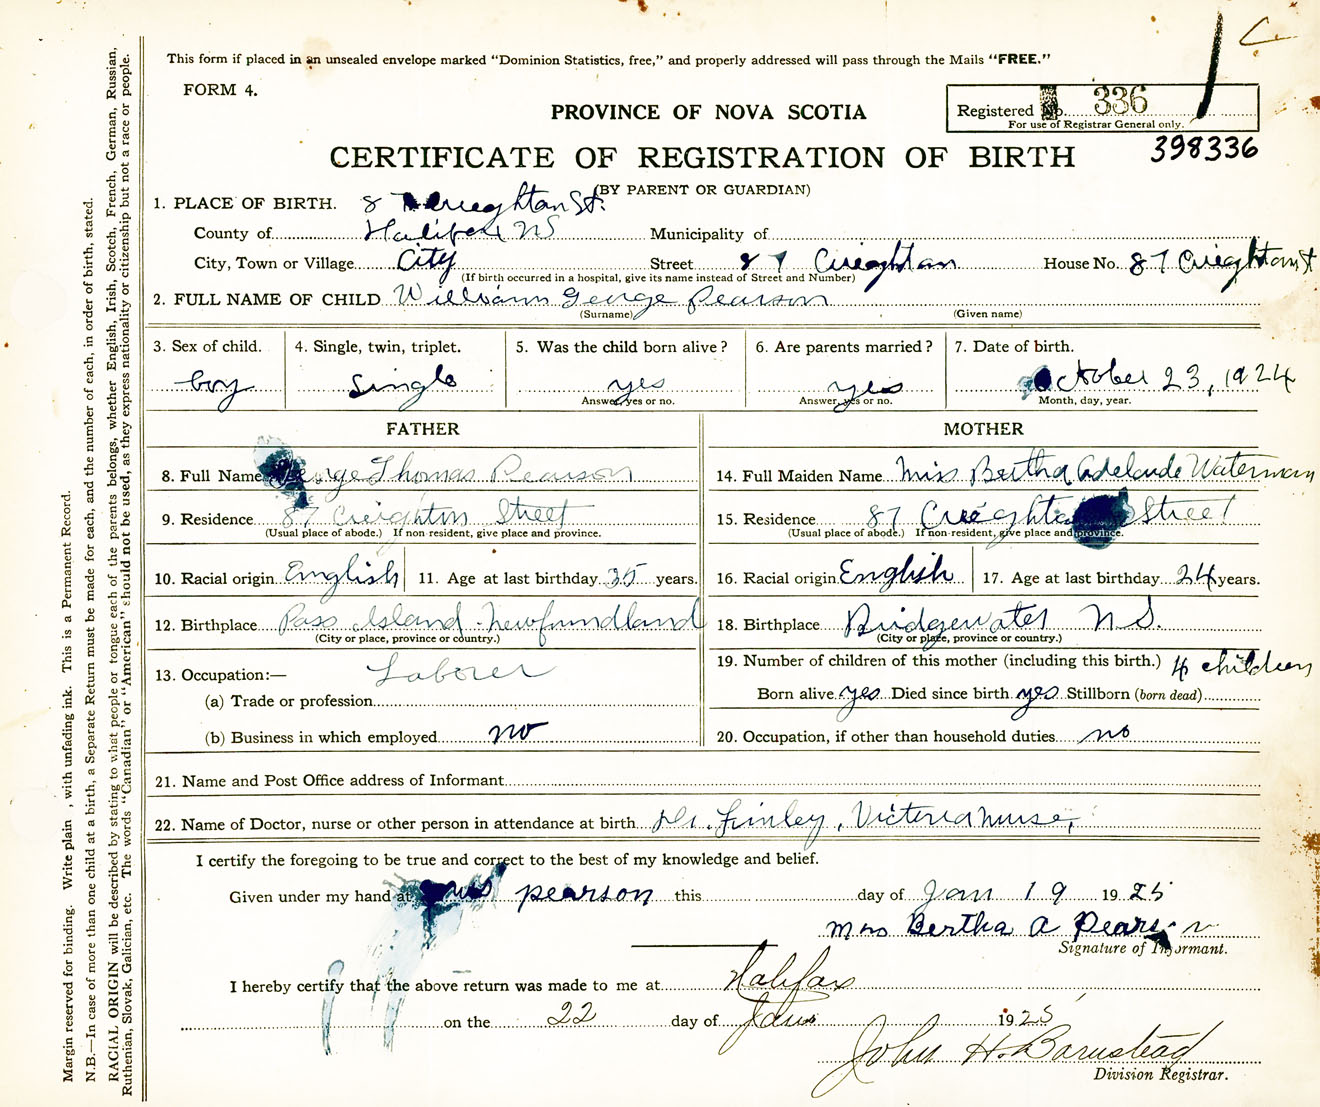 This form if placed in an unsealed envelope marked "Dominion Statistics, free," and properly addressed will pass through the Mails "FREE."
FORM 4.
PROVINCE OF NOVA SCOTIA
Registered No. 336
For use of Registrar General only.
398336
CERTIFICATE OF REGISTRATION OF BIRTH
(BY PARENT OR GUARDIAN)
1. PLACE OF BIRTH. 87 Creighton St.
County of Halifax NS Municipality of
City, Town or Village City Street 87 Creighton House No. 87 Creighton St
(If birth occurred in a hospital, give its name instead of Street and Number)
2. FULL NAME OF CHILD William George Pearson
(Surname) (Given name)
3. Sex of child. 4. Single, twin, triplet. 5. Was the child born alive? 6. Are parents married? 7. Date of birth.
boy single yes yes October 23, 1924
Answer, yes or no. Answer, yes or no. Month, day, year.
FATHER MOTHER
8. Full Name George Thomas Pearson 14. Full Maiden Name Miss Bertha Adelaude Waterman
9. Residence 87 Creighton Street 15. Residence 87 Creighton Street
(Usual place of abode.) If non-resident, give place and province. (Usual place of abode.) If non-resident, give place and province.
10. Racial origin English 11. Age at last birthday 35 years. 16. Racial origin English 17. Age at last birthday 24 years.
12. Birthplace Pass Island Newfoundland 18. Birthplace Bridgewater N.S.
(City or place, province or country.) (City or place, province or country.)
13. Occupation:— Laborer 19. Number of children of this mother (including this birth.) 4 children
(a) Trade or profession Born alive yes Died since birth yes Stillborn (born dead)
(b) Business in which employed no 20. Occupation, if other than household duties no
21. Name and Post Office address of Informant
22. Name of Doctor, nurse or other person in attendance at birth Dr. Finley, Victoria nurse,
I certify the foregoing to be true and correct to the best of my knowledge and belief.
Given under my hand at pearson this day of Jan 19 1925
Mrs Bertha A Pearson
Signature of Informant.
I hereby certify that the above return was made to me at Halifax
on the 22 day of Jan 1925
John H. Barnstead
Division Registrar.
Margin reserved for binding. Write plain , with unfading ink. This is a Permanent Record.
N.B.—In case of more than one child at a birth, a Separate Return must be made for each, and the number of each, in order of birth, stated.
RACIAL ORIGIN will be described by stating to what people or tongue each of the parents belongs, whether English, Irish, Scotch, French, German, Russian,
Ruthenian, Slovak, Galician, etc. The words "Canadian" or "American" should not be used, as they express nationality or citizenship but not a race or people.